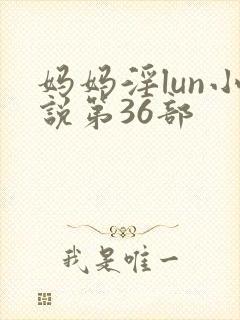 妈妈淫lun小
說第36部
我是唯一